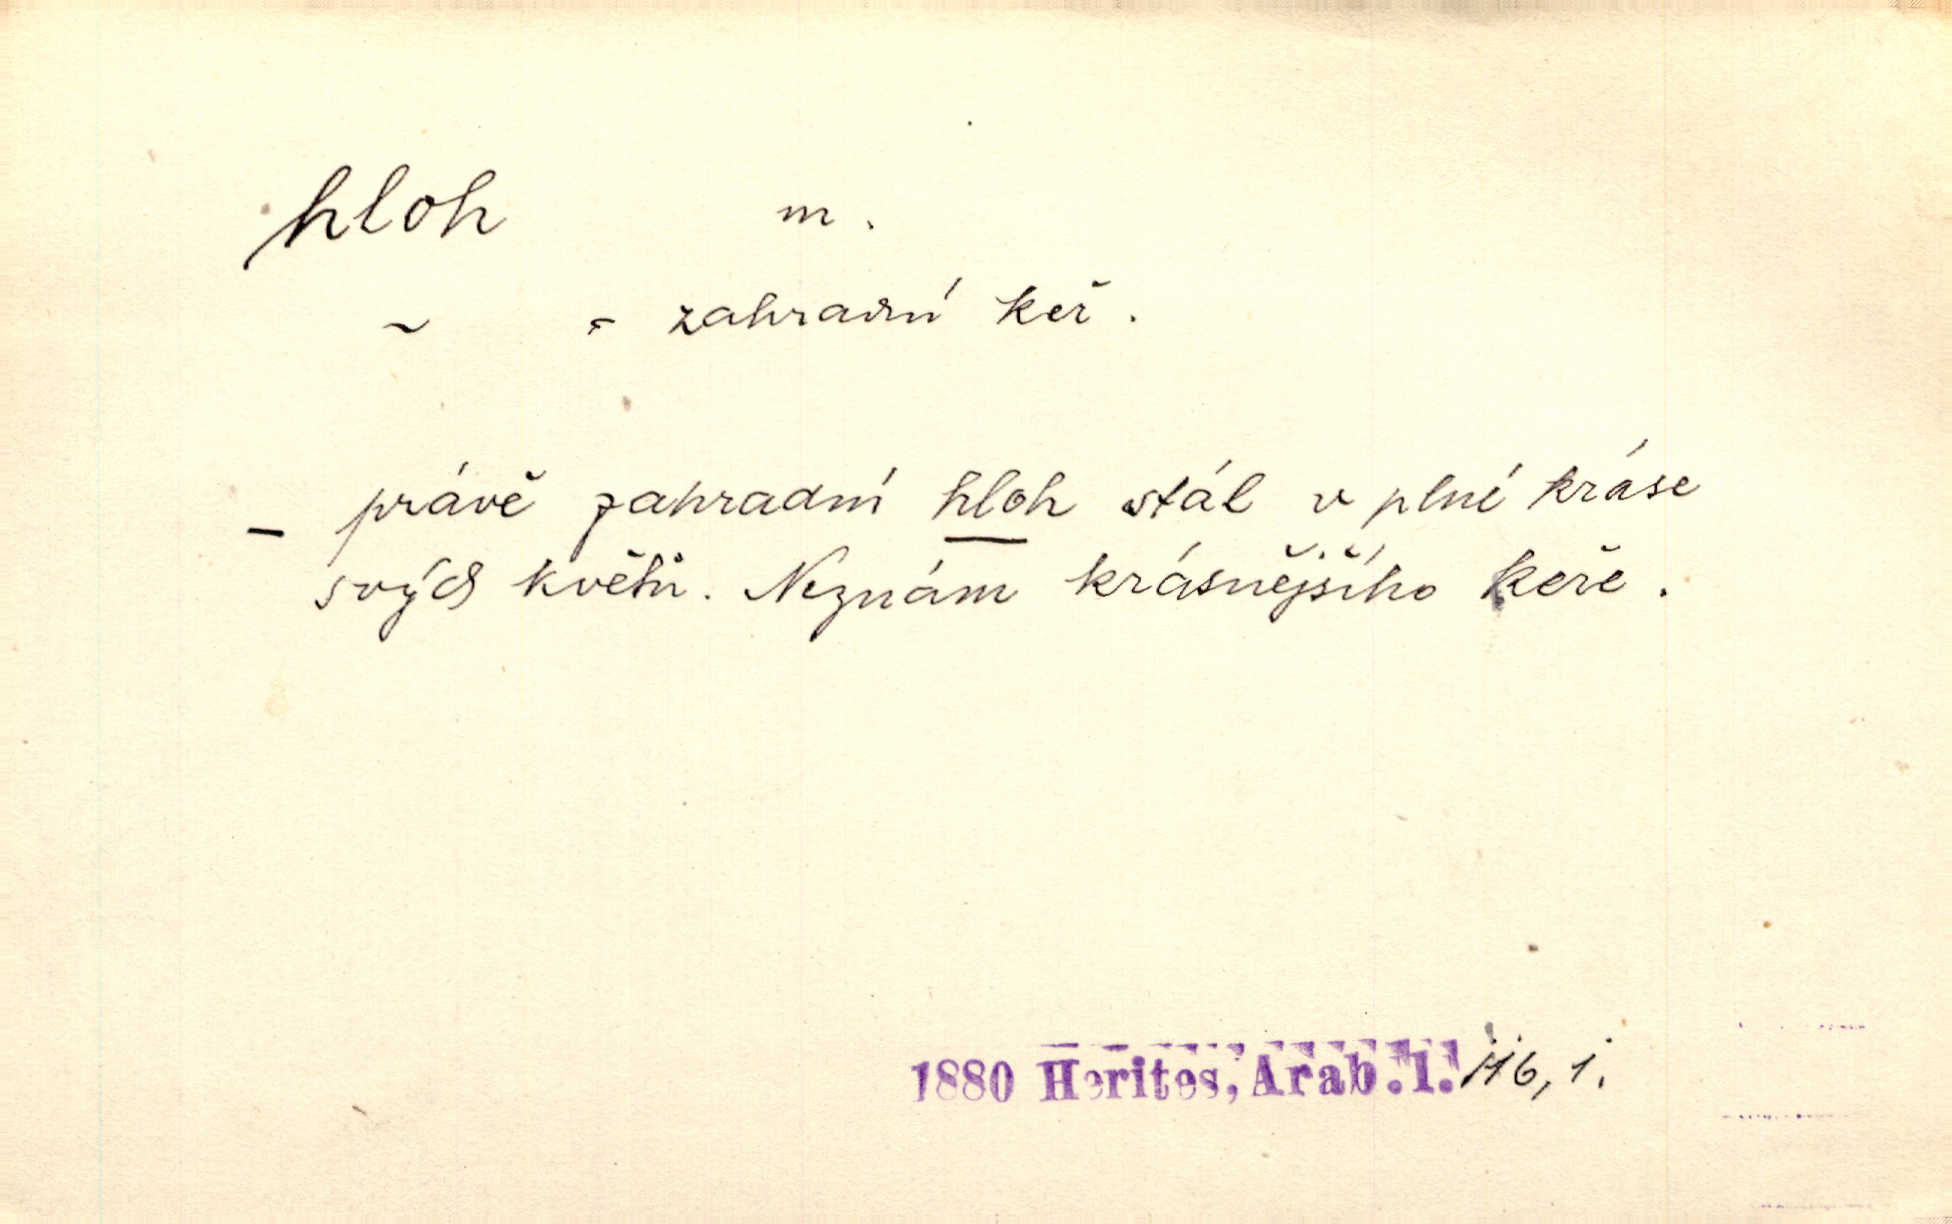 hloh m.
~ - zahradní keř.
– právě zahradní hloh stál v plné kráse
svých květů. Neznám krásnějšího keře.
1880 Herites, Arab. I. 116, 1.